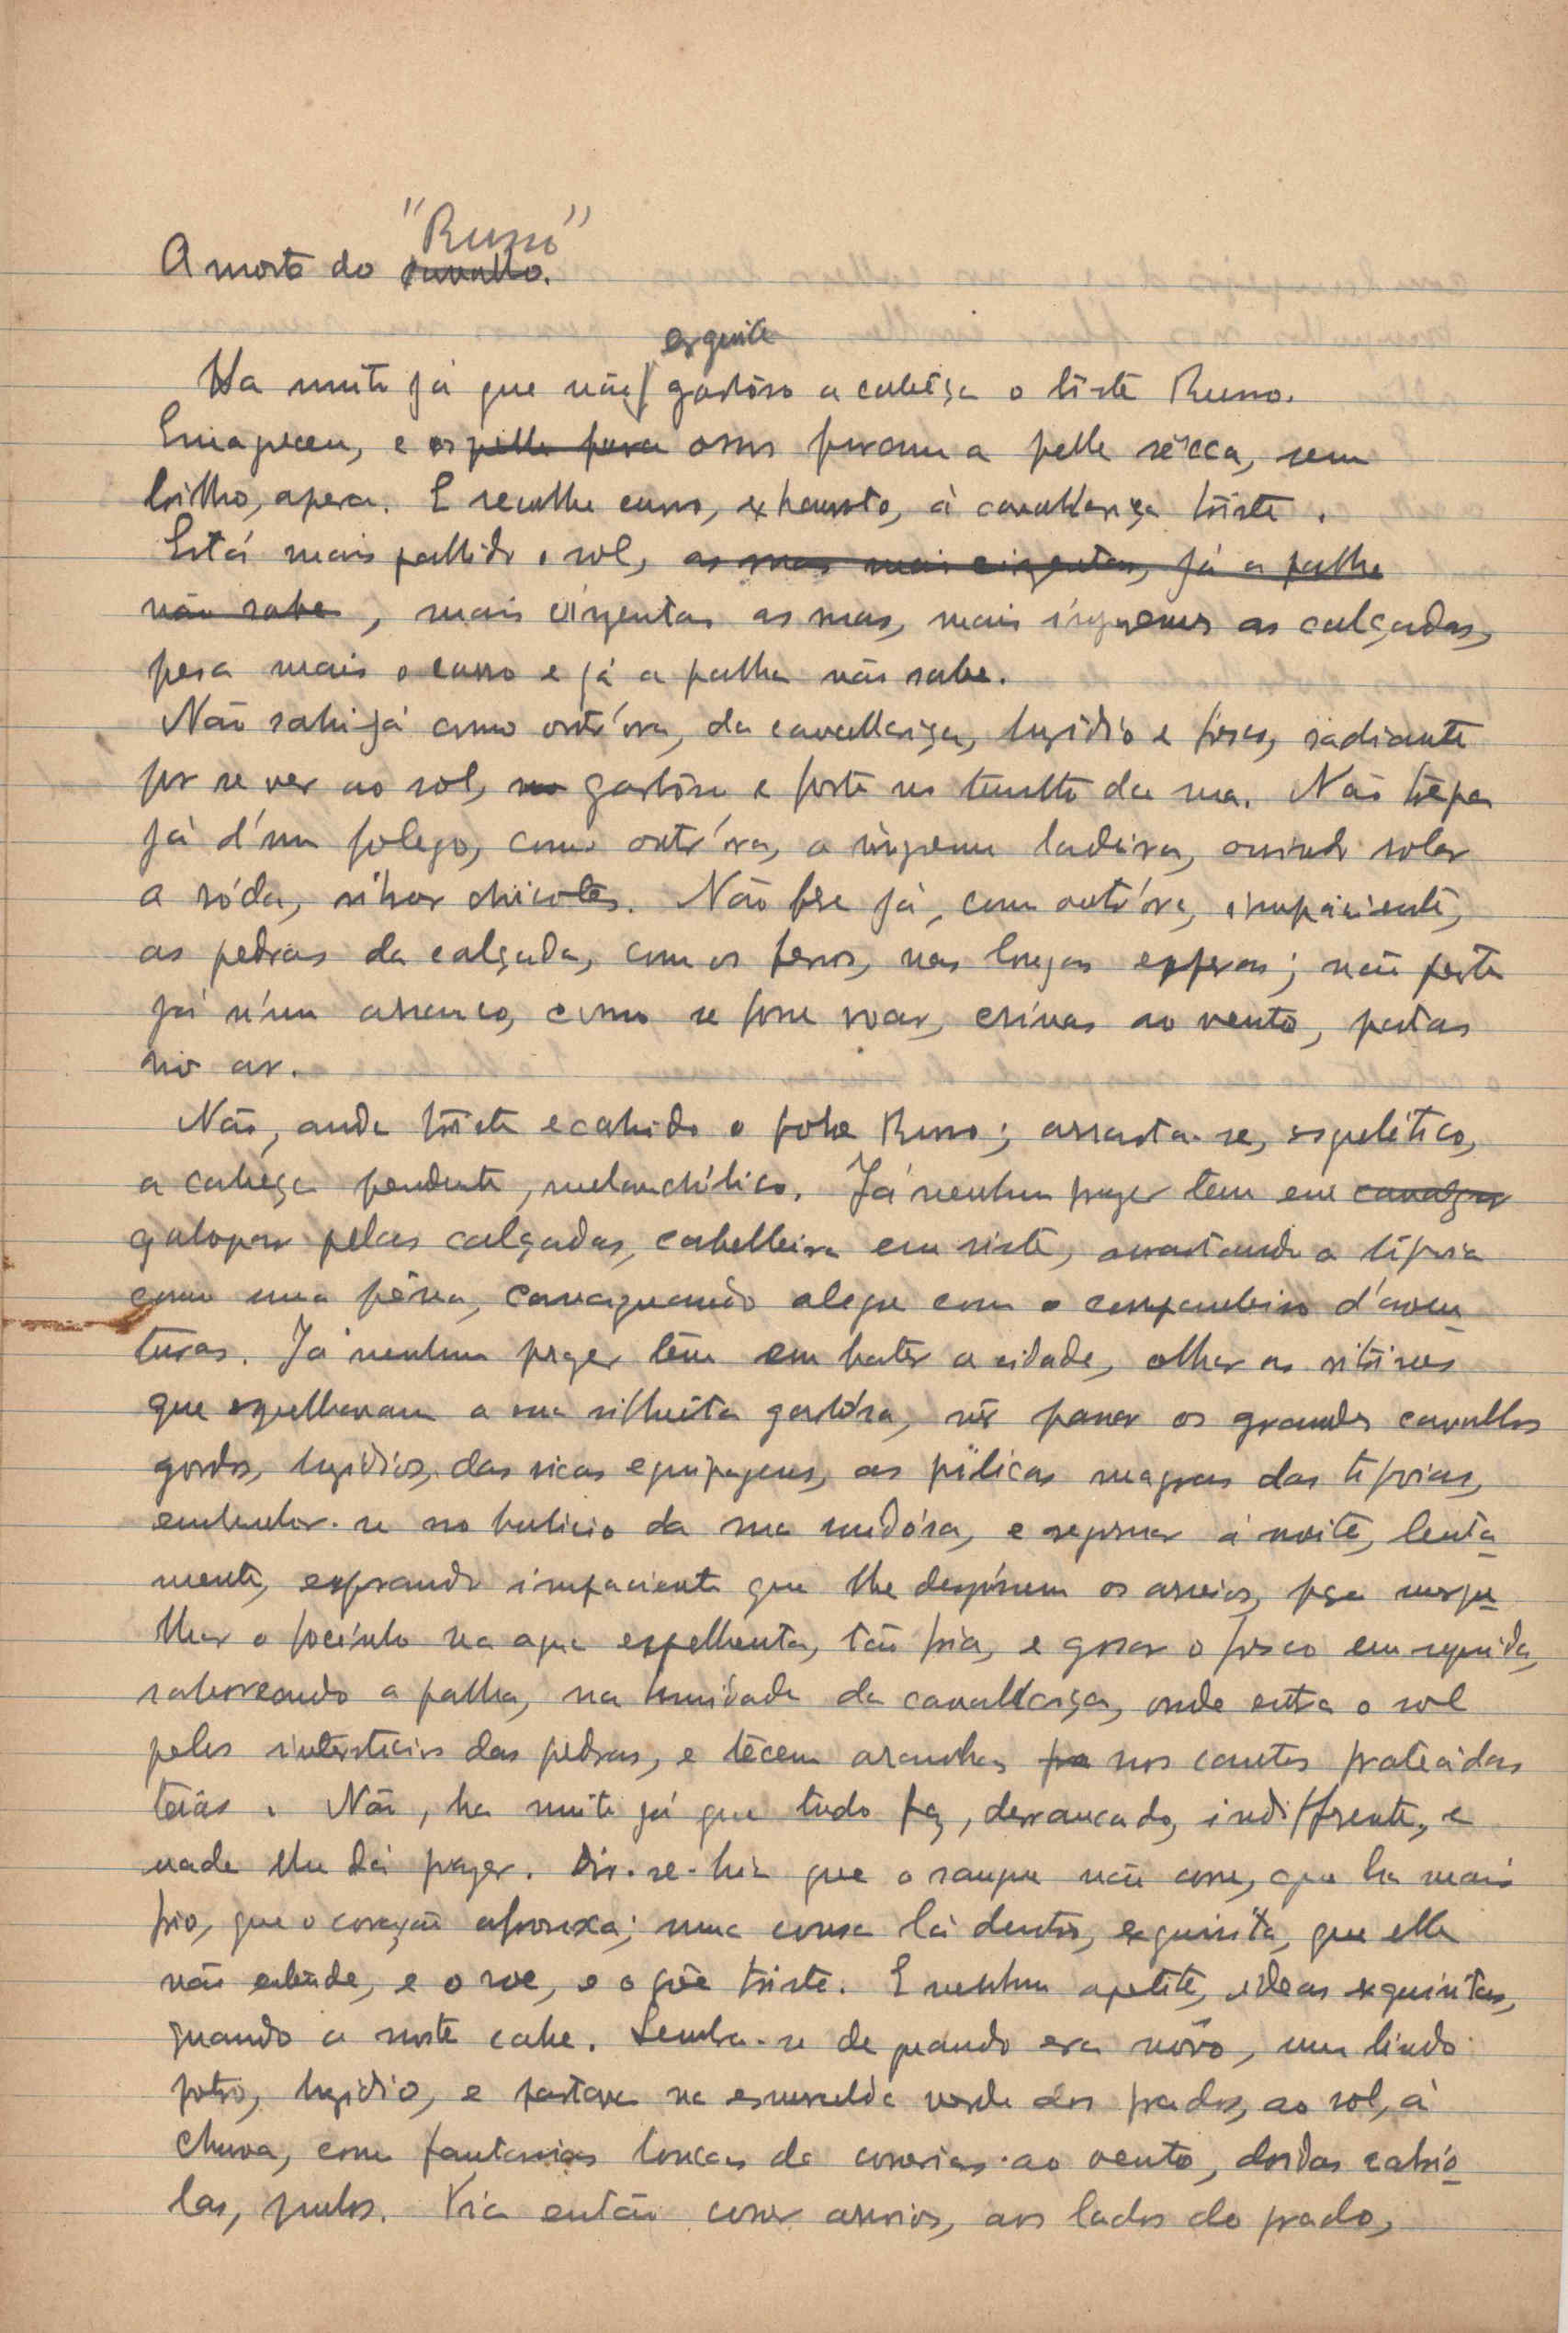 "Russo"
A morte do cavallo.
erguia
Ha muito já que não garbôso a cabêça o triste Russo.
Emagreceu, e os pelle fura ossos furam a pelle sêcca, sem
brilho, aspera. E recolhe curvo, exhausto, á cavallariça triste.
Está mais pallido o sol, as ruas mais cinzentas, já a palha
não sabe, mais cinzentas as ruas, mais ingremes as calçadas,
pesa mais o carro e já a palha não sabe.
Não sahi já como outr'óra, da cavallariça, luzidio e fresco, radiante
por se ver ao sol, garbôso e forte no tumulto da rua. Não trépa
já d'um folego, como outr'óra, a ingreme ladeira, ouvindo rolar
a róda, silvar chicotes. Não fere já, como outr'óra, impaciente,
as pedras da calçada, com os ferros, nas longas esperas; não parte
já n'um arranco, como se fosse voar, crinas ao vento, patas
no ar.
Não, anda triste e cahido o pobre Russo; arrasta-se, esquelético,
a cabêça pendente, melanchólico. Já nenhum prazer tem em
galopar pelas calçadas, cabelleira em riste, arrastando a tipoia
como uma pêna, cavaqueando alegre com o companheiro d'aven-
turas. Já nenhum prazer têm em bater a cidade, olhar as vitrines
que espelhavam a sua silhuêta garbósa, vêr passar os grandes cavallos
gordos, luzidios, das ricas equipagens, as pilécas magras das tipoias,
embeber-se no bulicio da rua ruidósa, e regressar á noite, lenta-
mente, esperando impaciente que lhe despissem os arreios, pra mergu-
lhar o focinho na agua espelhenta, tão fria, e gosar o fresco em seguida,
saboreando a palha, na humidade da cavallariça, onde entra o sol
pelos intersticios das pedras, e técem aranhas nos cantos prateádas
teias. Não, ha muito já que tudo faz, derrancado, indifferente, e
nada lhe dá prazer. Dir-se-hia que o sangue não corre, que ha mais
frio, que o coração afrouxa; uma cousa lá dentro, exquisita, que elle
não entende, e o roe, e o põe triste. E nenhum apetite, ideas exquisitas,
quando a noite cahe. Lembra-se de quando era nôvo, um lindo
potro, luzidio, e pastava na esmeralda verde dos prados, ao sol, á
chuva, com fantasias loucas de correrias ao vento, doidas cabrio-
las, pulos. Via então correr arroios, aos lados do prado,